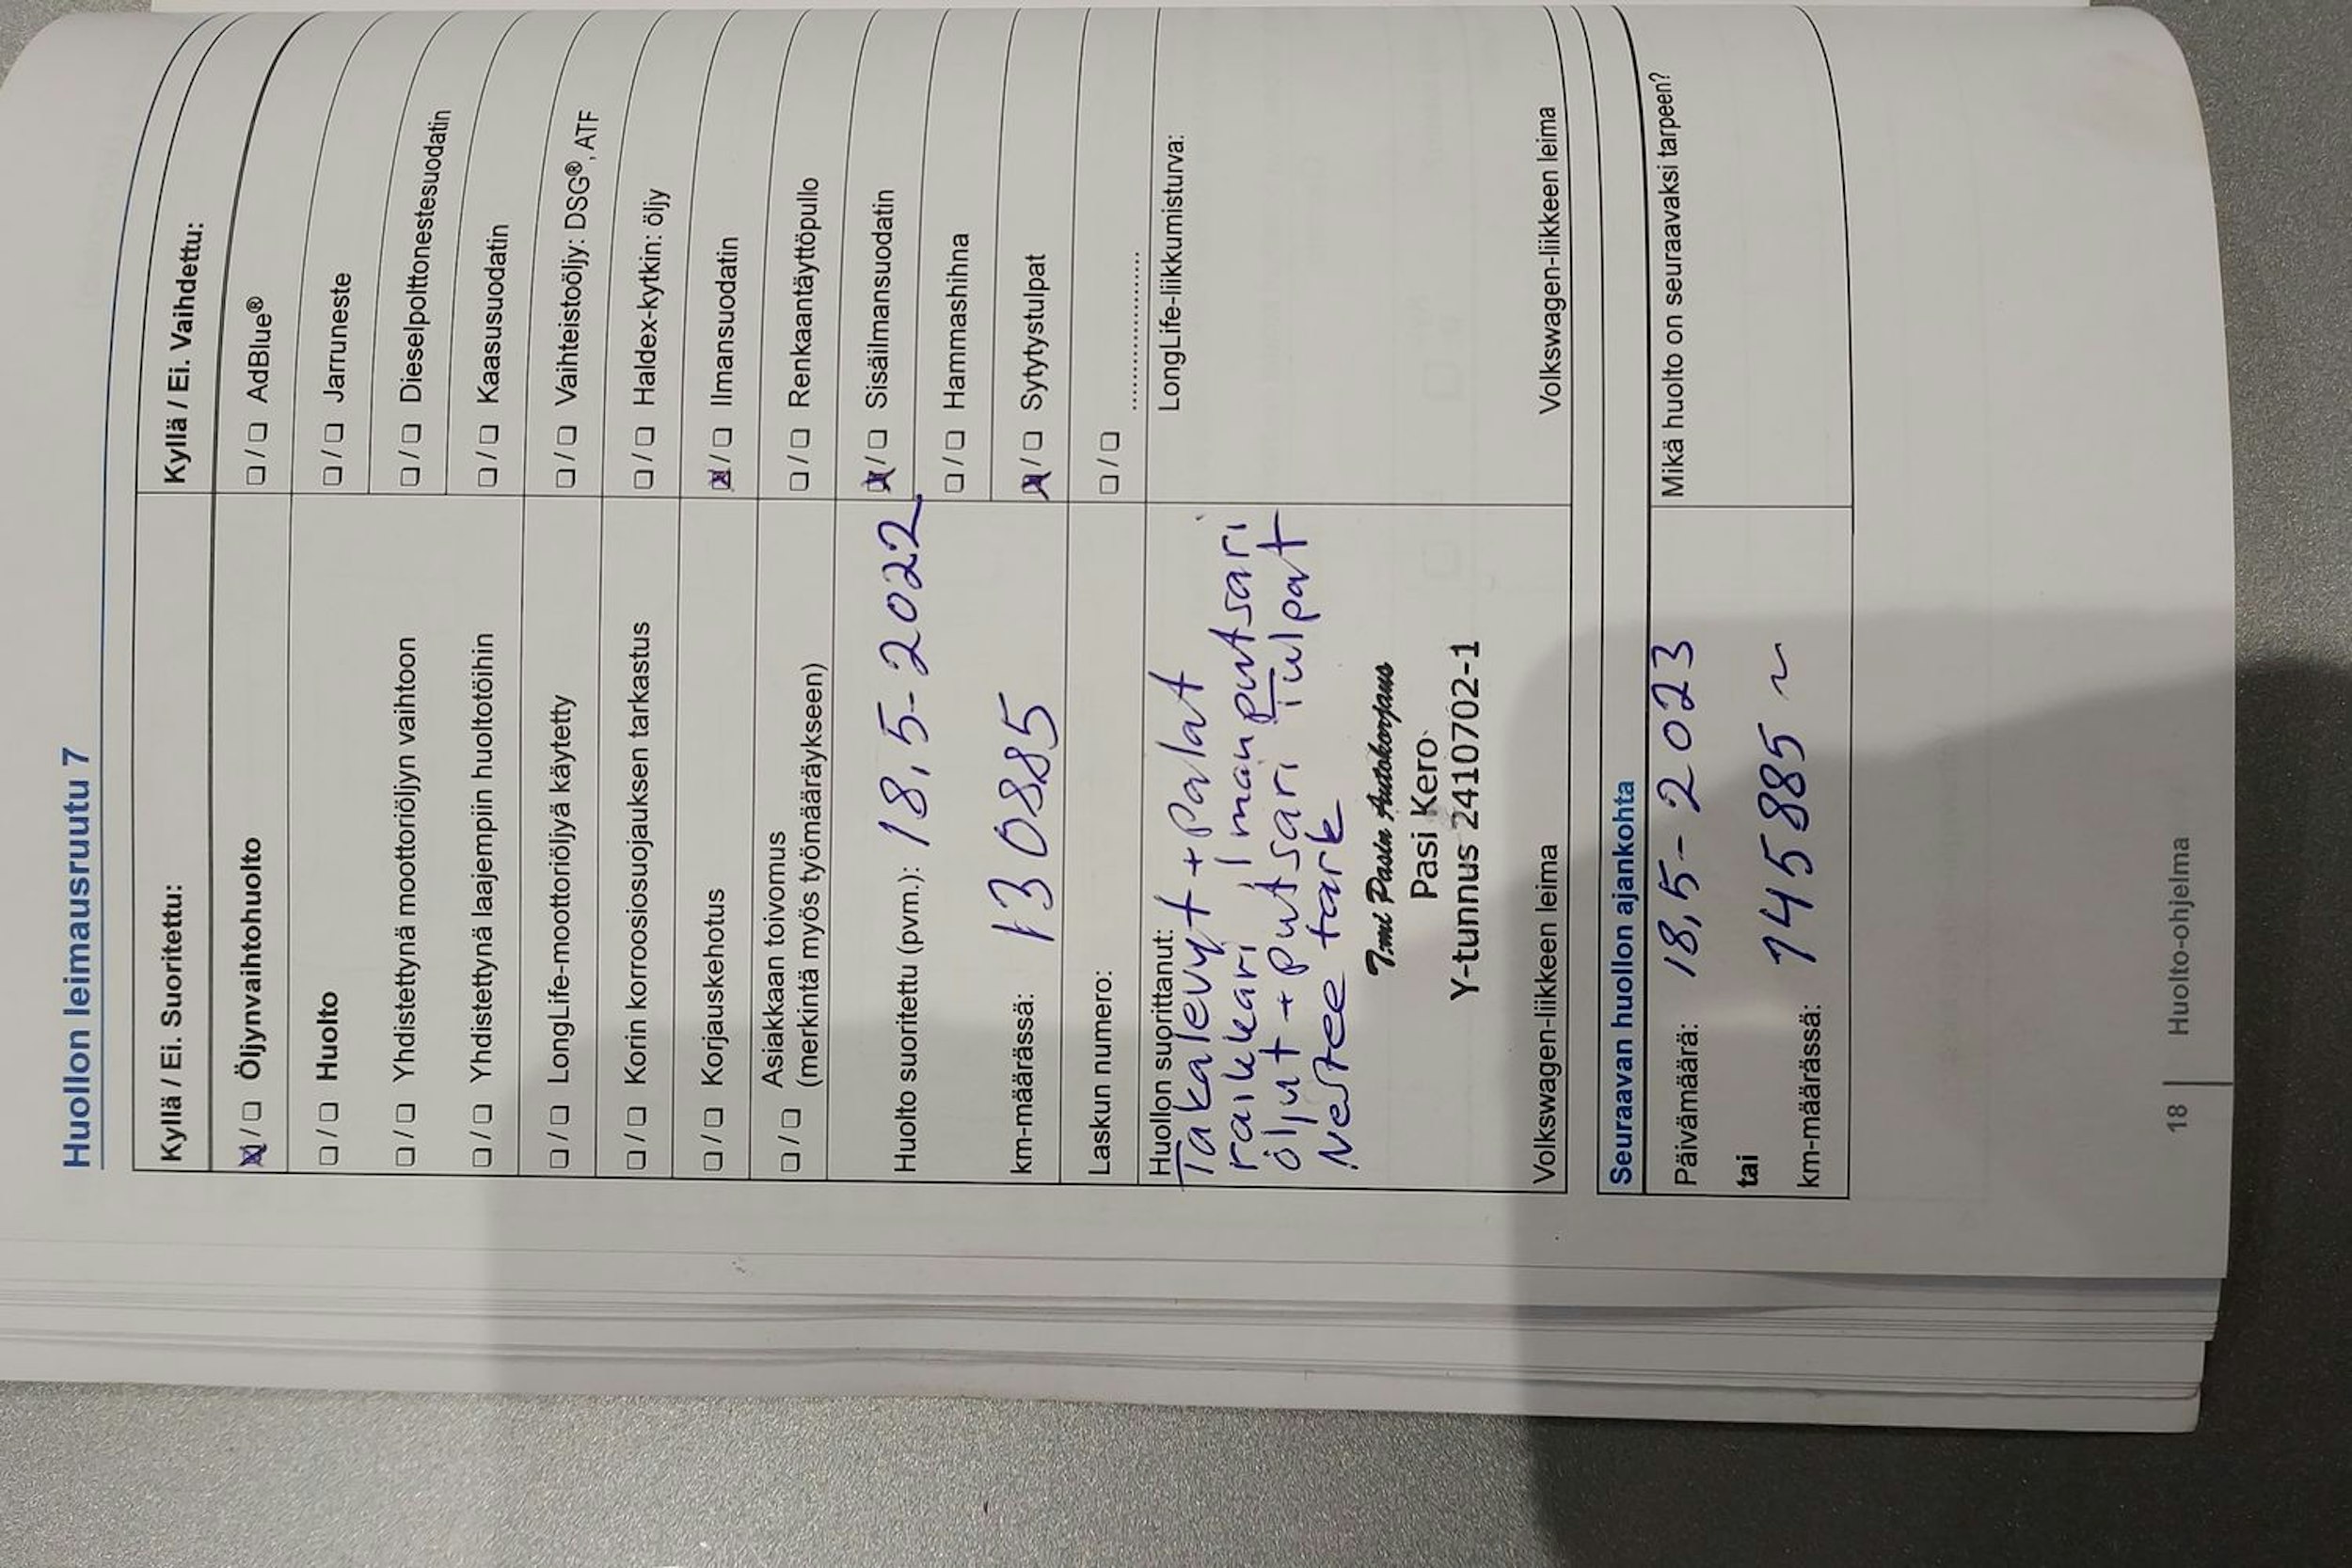 Huollon leimausruutu 7
Kyllä / Ei. Suoritettu:
Öljynvaihtohuolto
Huolto
Yhdistettynä moottoriöljyn vaihtoon
Yhdistettynä laajempiin huoltotöihin
LongLife-moottoriöljyä käytetty
Korin korroosiosuojauksen tarkastus
Korjauskehotus
Asiakkaan toivomus
(merkintä myös työmääräykseen)
Huolto suoritettu (pvm.): 18,5-2022
km-määrässä: 130885
Laskun numero:
Huollon suorittanut:
Takalevyt + Palat
raikkari Iman putsari
öljyt + Putsari Tulpat
Nestee tark
T:mi Pasin Autokorjaus
Pasi Kero
Y-tunnus 2410702-1
Volkswagen-liikkeen leima
Kyllä / Ei. Vaihdettu:
AdBlue®
Jarruneste
Dieselpolttonestesuodatin
Kaasusuodatin
Vaihteistoöljy: DSG®, ATF
Haldex-kytkin: öljy
Ilmansuodatin
Renkaantäyttöpullo
Sisäilmansuodatin
Hammashihna
Sytytystulpat
LongLife-liikkumisturva:
Volkswagen-liikkeen leima
Seuraavan huollon ajankohta
Päivämäärä: 18,5-2023
tai
km-määrässä: 145885 ~
Mikä huolto on seuraavaksi tarpeen?
18 Huolto-ohjelma